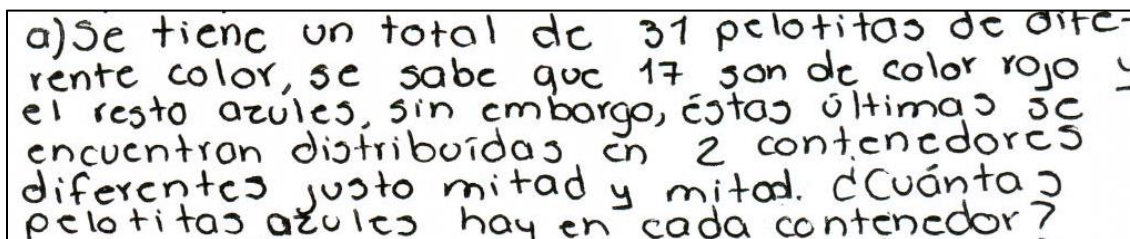 a) Se tiene un total de 31 pelotitas de dife-
rente color, se sabe que 17 son de color rojo y
el resto azules, sin embargo, éstas últimas se
encuentran distribuídas en 2 contenedores
diferentes justo mitad y mitad. ¿Cuántas
pelotitas azules hay en cada contenedor?